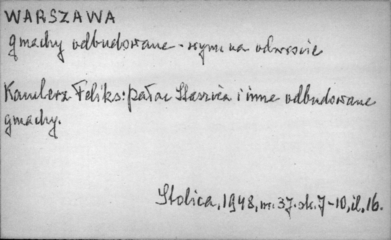 WARSZAWA
gmachy odbudowane - wym. na odwrocie
Kanclerz Feliks: pałac Staszica i inne odbudowane
gmachy.
Stolica, 1948, nr. 37. sk. 7-10, il. 16.